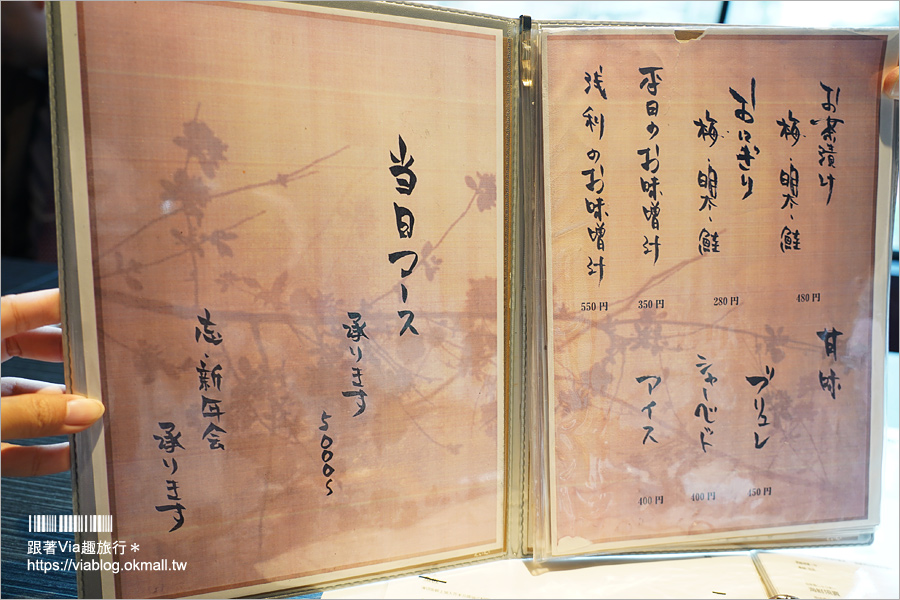 お茶漬け
梅・明太・鮭
480円
おにぎり
梅・明太・鮭
280円
本日のお味噌汁
350円
浅利のお味噌汁
550円
甘味
ブリュレ
450円
シャーベット
400円
アイス
400円
当日コース
承ります
5000〜
忘・新年会
承ります
跟著Via趣旅行＊
https://viablog.okmall.tw